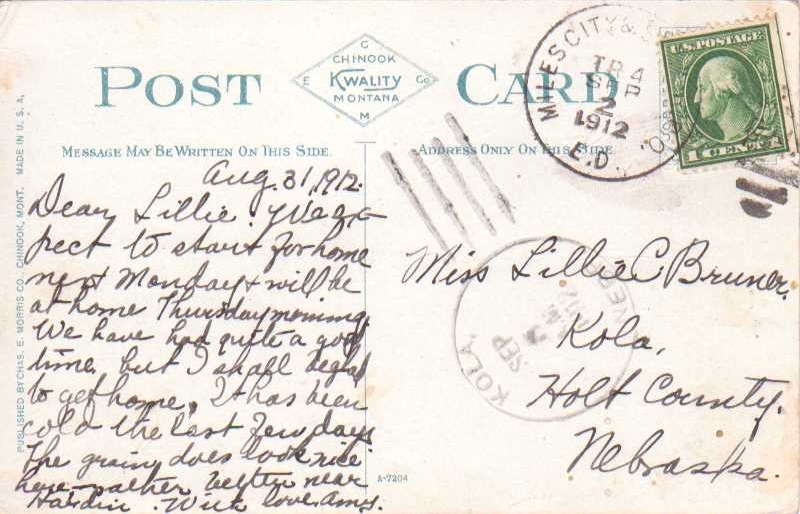 POST CARD
C
CHINOOK
E KWALITY Co
MONTANA
M
MESSAGE MAY BE WRITTEN ON THIS SIDE.
ADDRESS ONLY ON THIS SIDE.
MILES CITY &
TR 4
SEP
2
1912
R.P.D.
U.S. POSTAGE
1 CENT 1
Aug. 31, 1912.
Dear Lillie. We ex-
pect to start for home
next Monday & will be
at home Thursday morning.
We have had quite a good
time but I shall be glad
to get home. It has been
cold the last few days
The grain does look nice
here - rather better near
Hardin. With love. Amy.
Miss Lillie C Bruner.
Kola,
Holt County.
Nebraska.
KOLA,
SEP
A-7204
PUBLISHED BY CHAS. E. MORRIS CO. CHINOOK, MONT. MADE IN U.S.A.